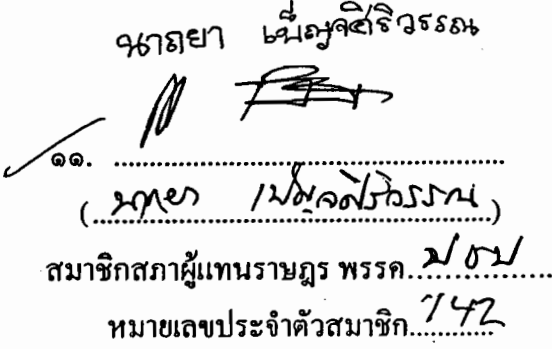 นาถยา เบ็ญจศิริวรรณ
๑๑. ..........................................................
(นาถยา เบ็ญจศิริวรรณ)
สมาชิกสภาผู้แทนราษฎร พรรค ปชป
หมายเลขประจำตัวสมาชิก 142